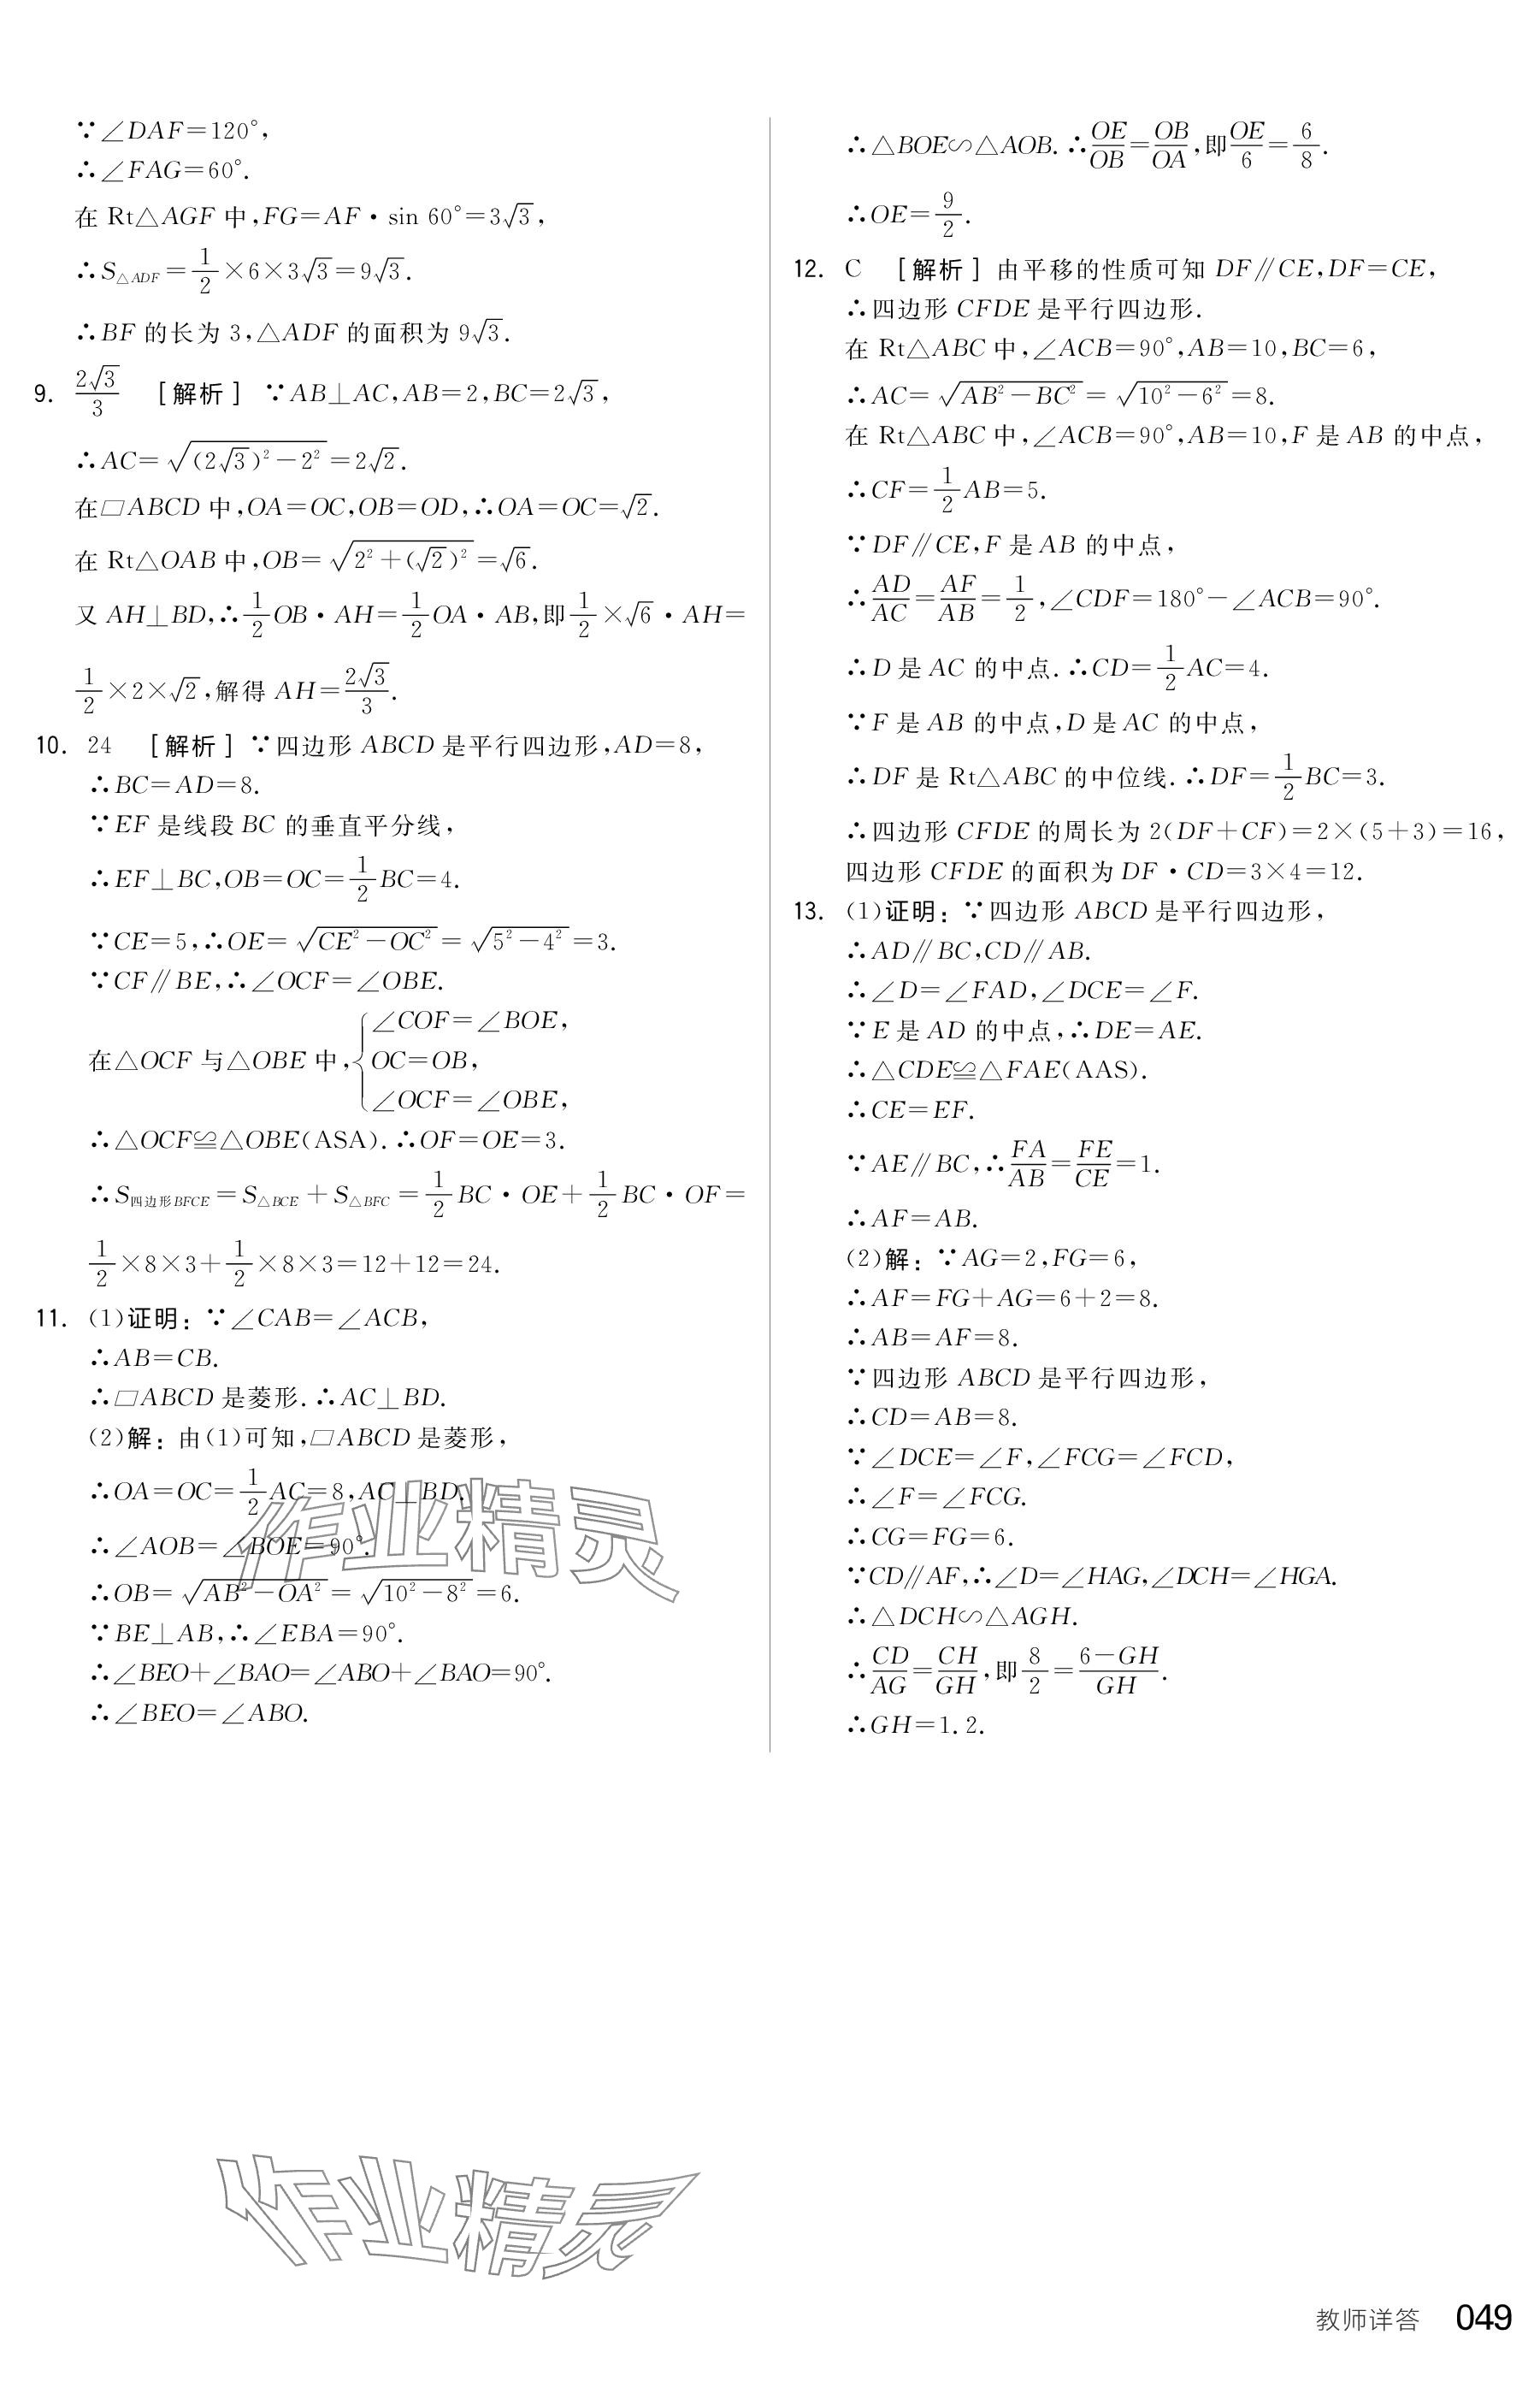 ∵∠DAF=120°,
∴∠FAG=60°.
在 Rt△AGF 中,FG=AF·sin 60°=3√3,
∴S△ADF=1/2×6×3√3=9√3.
∴BF 的长为 3,△ADF 的面积为 9√3.
9. 2√3/3 [解析] ∵AB⊥AC,AB=2,BC=2√3,
∴AC=√((2√3)²-2²)=2√2.
在□ABCD 中,OA=OC,OB=OD,∴OA=OC=√2.
在 Rt△OAB 中,OB=√(2²+(√2)²)=√6.
又 AH⊥BD,∴1/2OB·AH=1/2OA·AB,即1/2×√6·AH=
1/2×2×√2,解得 AH=2√3/3.
10. 24 [解析] ∵四边形 ABCD 是平行四边形,AD=8,
∴BC=AD=8.
∵EF 是线段 BC 的垂直平分线,
∴EF⊥BC,OB=OC=1/2BC=4.
∵CE=5,∴OE=√(CE²-OC²)=√(5²-4²)=3.
∵CF∥BE,∴∠OCF=∠OBE.
在△OCF 与△OBE 中,{∠COF=∠BOE,
OC=OB,
∠OCF=∠OBE,
∴△OCF≌△OBE(ASA).∴OF=OE=3.
∴S四边形BFCE=S△BCE+S△BFC=1/2BC·OE+1/2BC·OF=
1/2×8×3+1/2×8×3=12+12=24.
11. (1)证明:∵∠CAB=∠ACB,
∴AB=CB.
∴□ABCD 是菱形.∴AC⊥BD.
(2)解:由(1)可知,□ABCD 是菱形,
∴OA=OC=1/2AC=8,AC⊥BD.
∴∠AOB=∠BOE=90°.
∴OB=√(AB²-OA²)=√(10²-8²)=6.
∵BE⊥AB,∴∠EBA=90°.
∴∠BEO+∠BAO=∠ABO+∠BAO=90°.
∴∠BEO=∠ABO.
作业精灵
∴△BOE∽△AOB.∴OE/OB=OB/OA,即OE/6=6/8.
∴OE=9/2.
12. C [解析] 由平移的性质可知 DF∥CE,DF=CE,
∴四边形 CFDE 是平行四边形.
在 Rt△ABC 中,∠ACB=90°,AB=10,BC=6,
∴AC=√(AB²-BC²)=√(10²-6²)=8.
在 Rt△ABC 中,∠ACB=90°,AB=10,F 是 AB 的中点,
∴CF=1/2AB=5.
∵DF∥CE,F 是 AB 的中点,
∴AD/AC=AF/AB=1/2,∠CDF=180°-∠ACB=90°.
∴D 是 AC 的中点.∴CD=1/2AC=4.
∵F 是 AB 的中点,D 是 AC 的中点,
∴DF 是 Rt△ABC 的中位线.∴DF=1/2BC=3.
∴四边形 CFDE 的周长为 2(DF+CF)=2×(5+3)=16,
四边形 CFDE 的面积为 DF·CD=3×4=12.
13. (1)证明:∵四边形 ABCD 是平行四边形,
∴AD∥BC,CD∥AB.
∴∠D=∠FAD,∠DCE=∠F.
∵E 是 AD 的中点,∴DE=AE.
∴△CDE≌△FAE(AAS).
∴CE=EF.
∵AE∥BC,∴FA/AB=FE/CE=1.
∴AF=AB.
(2)解:∵AG=2,FG=6,
∴AF=FG+AG=6+2=8.
∴AB=AF=8.
∵四边形 ABCD 是平行四边形,
∴CD=AB=8.
∵∠DCE=∠F,∠FCG=∠FCD,
∴∠F=∠FCG.
∴CG=FG=6.
∵CD∥AF,∴∠D=∠HAG,∠DCH=∠HGA.
∴△DCH∽△AGH.
∴CD/AG=CH/GH,即8/2=(6-GH)/GH.
∴GH=1.2.
作业精灵
教师详答 049